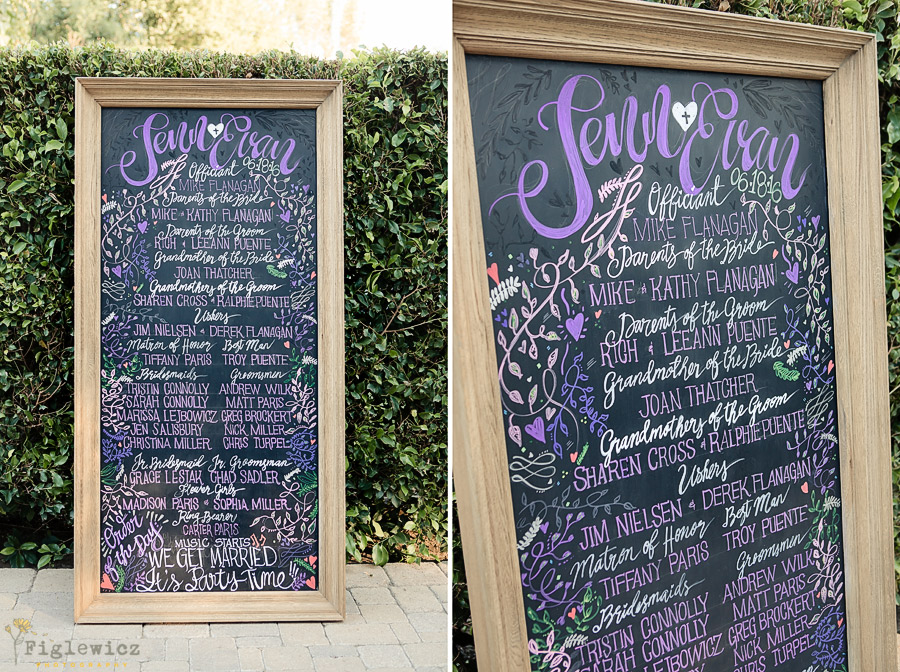 Jenn Evan
06·18·16
Officiant
MIKE FLANAGAN
Parents of the Bride
MIKE & KATHY FLANAGAN
Parents of the Groom
RICH & LEEANN PUENTE
Grandmother of the Bride
JOAN THATCHER
Grandmothers of the Groom
SHAREN CROSS & RALPHIE PUENTE
Ushers
JIM NIELSEN & DEREK FLANAGAN
Matron of Honor Best Man
TIFFANY PARIS TROY PUENTE
Bridesmaids Groomsmen
TRISTIN CONNOLLY ANDREW WILK
SARAH CONNOLLY MATT PARIS
MARISSA LEJBOWICZ GREG BROCKERT
JEN SALISBURY NICK MILLER
CHRISTINA MILLER CHRIS TURPEL
Jr. Bridesmaid Jr. Groomsman
GRACE LESIAK CHAD SADLER
Flower Girls
MADISON PARIS & SOPHIA MILLER
Ring Bearer
CARTER PARIS
Order of the Day
MUSIC STARTS
WE GET MARRIED
It's Party-Time!
Figlewicz
PHOTOGRAPHY
Jenn Evan
06·18·16
Officiant
MIKE FLANAGAN
Parents of the Bride
MIKE & KATHY FLANAGAN
Parents of the Groom
RICH & LEEANN PUENTE
Grandmother of the Bride
JOAN THATCHER
Grandmothers of the Groom
SHAREN CROSS & RALPHIE PUENTE
Ushers
JIM NIELSEN & DEREK FLANAGAN
Matron of Honor Best Man
TIFFANY PARIS TROY PUENTE
Bridesmaids Groomsmen
TRISTIN CONNOLLY ANDREW WILK
SARAH CONNOLLY MATT PARIS
GREG BROCKERT
NICK MILLER